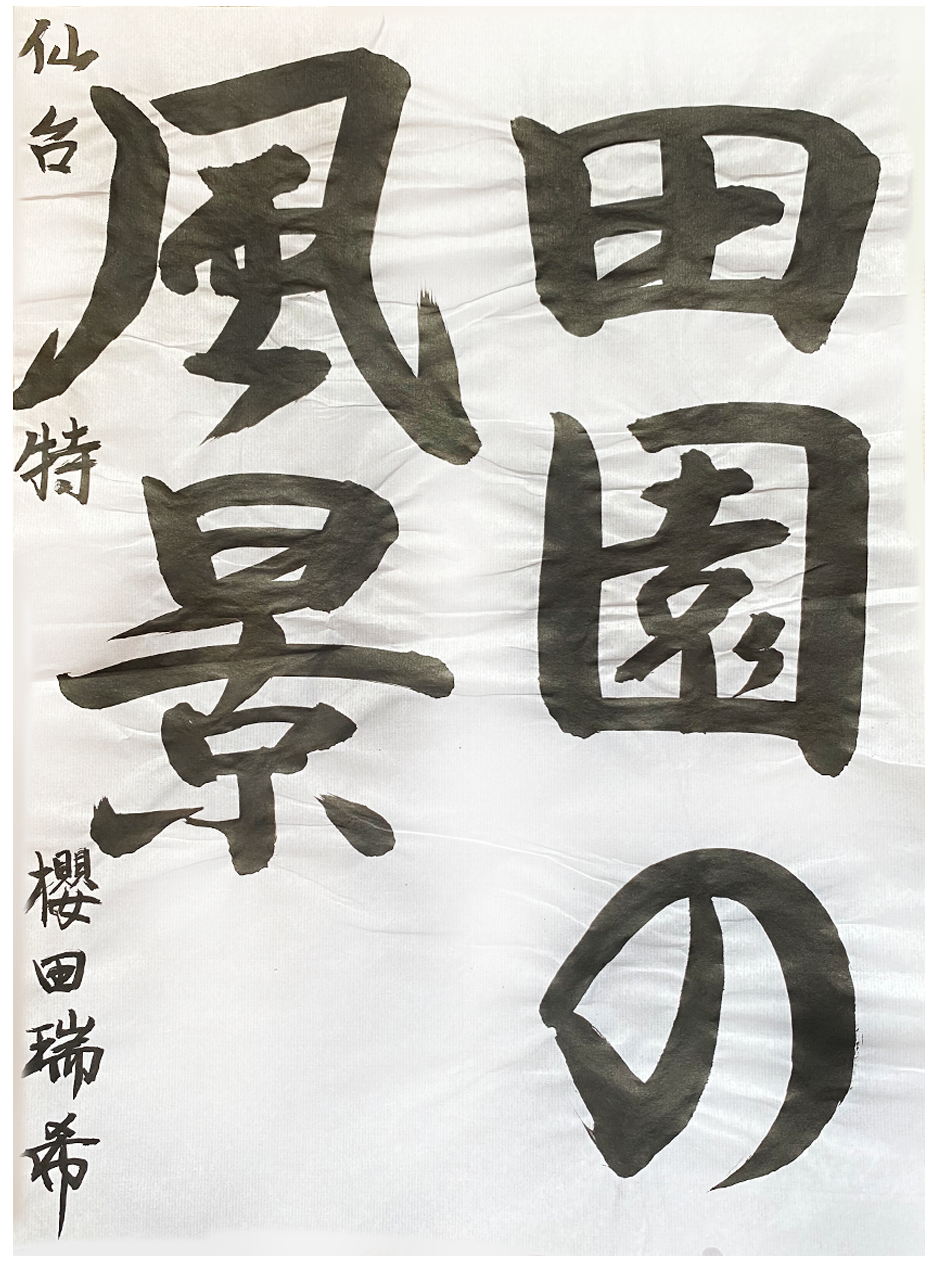 田園の
風景
仙台 特 櫻田瑞希